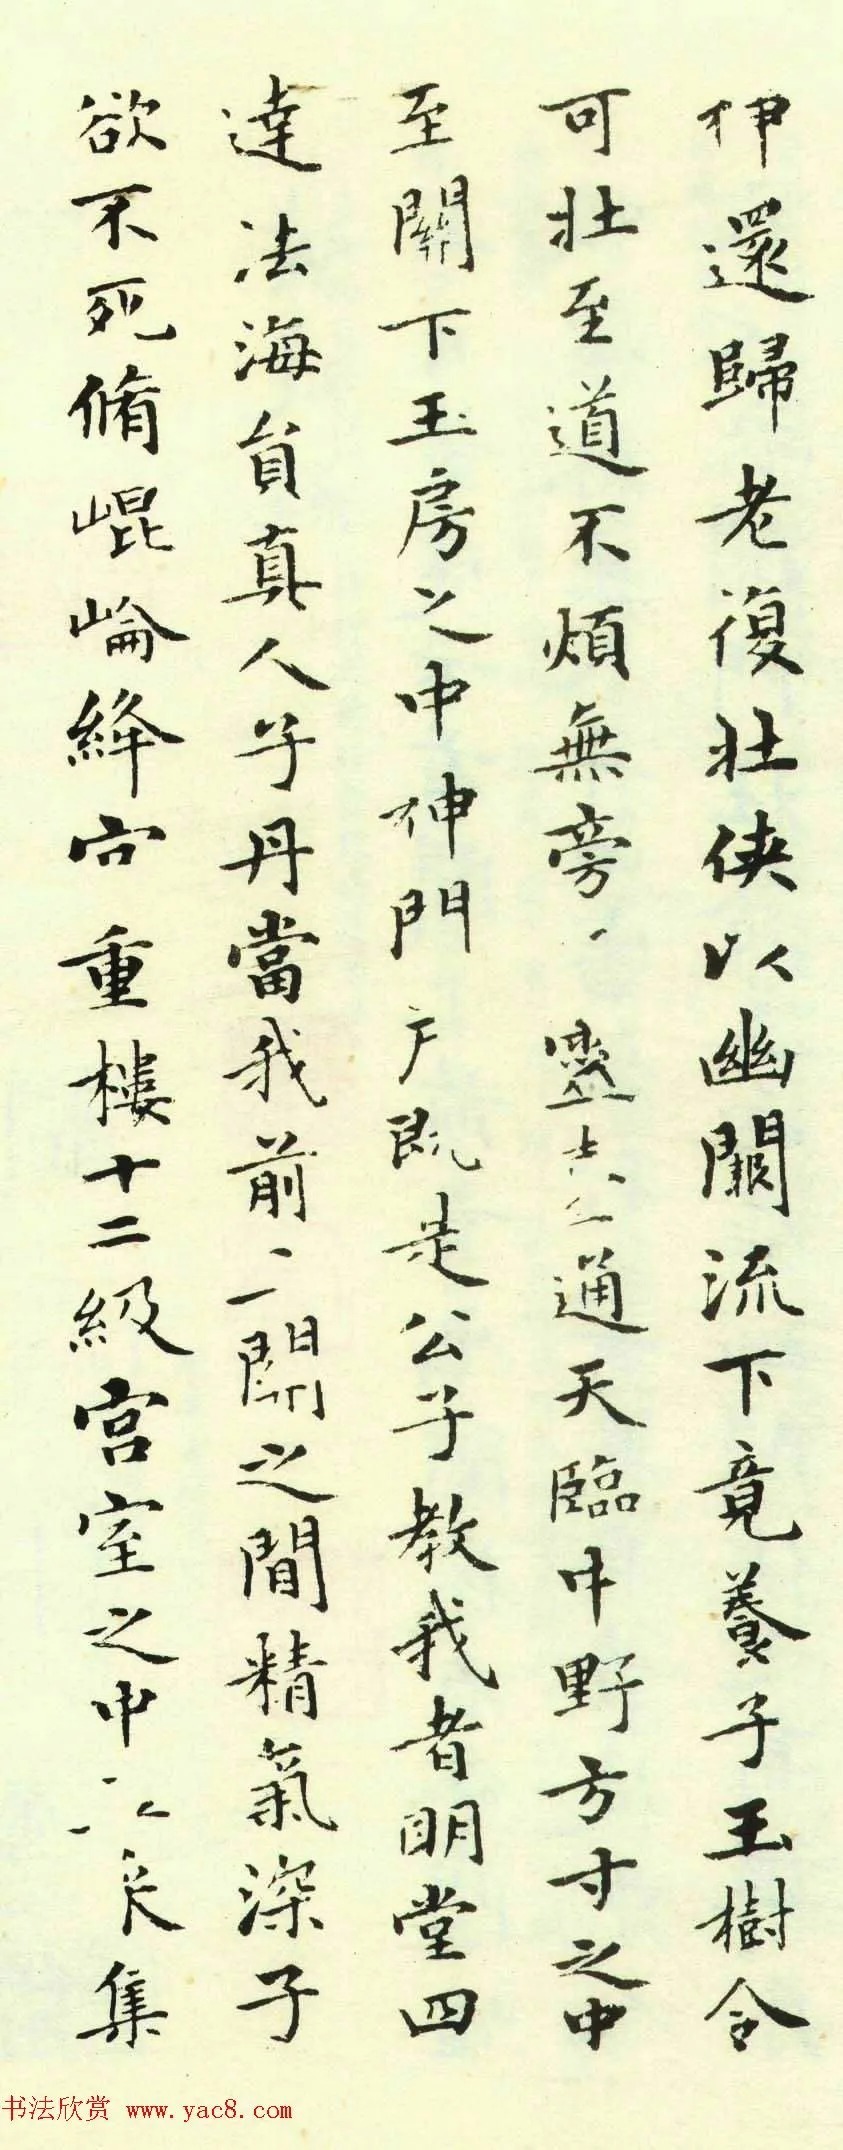 伊還歸老復壯俠以幽闕流下竟養子玉樹令
可壯至道不煩無旁 靈 通天臨中野方寸之中
至關下玉房之中神門戶既是公子教我者明堂四
達法海員真人子丹當我前二關之間精氣深子
欲不死脩崐崘絳宮重樓十二級宮室之中 集
书法欣赏 www.yac8.com